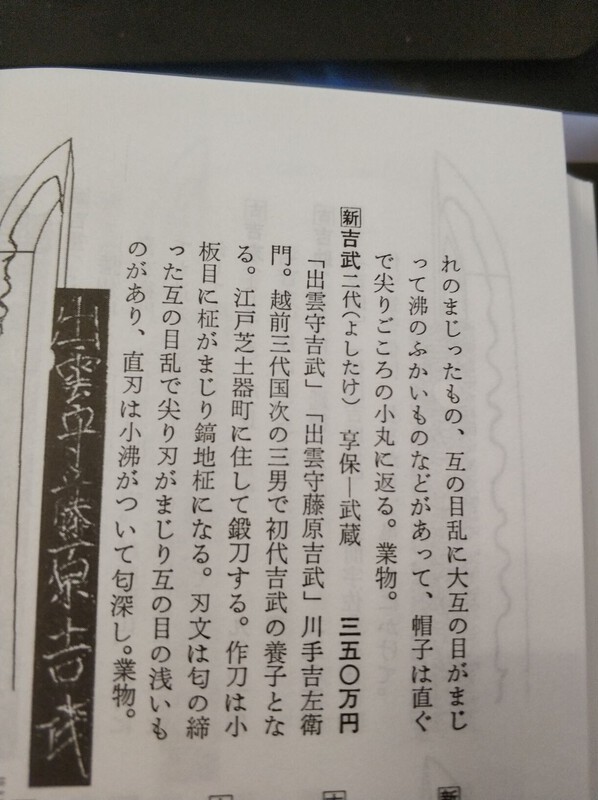 れのまじったもの、互の目乱に大互の目がまじ
って沸のふかいものなどがあって、帽子は直ぐ
で尖りごころの小丸に返る。業物。
新 吉武 二代(よしたけ) 享保―武蔵 三五〇万円
「出雲守吉武」「出雲守藤原吉武」川手吉左衛
門。越前三代国次の三男で初代吉武の養子とな
る。江戸芝土器町に住して鍛刀する。作刀は小
板目に柾がまじり鎬地柾になる。刃文は匂の締
った互の目乱で尖り刃がまじり互の目の浅いも
のがあり、直刃は小沸がついて匂深し。業物。
出雲守藤原吉武